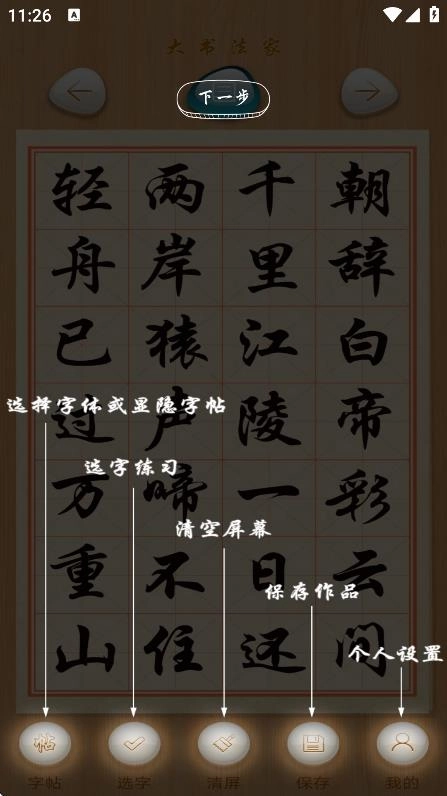 11:26
大书法家
下一步
轻 两 千 朝
舟 岸 里 辞
已 猿 江 白
过 声 陵 帝
万 啼 一 彩
重 不 日 云
山 住 还 间
选择字体或显隐字帖
选字练习
清空屏幕
保存作品
个人设置
帖
字帖 选字 清屏 保存 我的